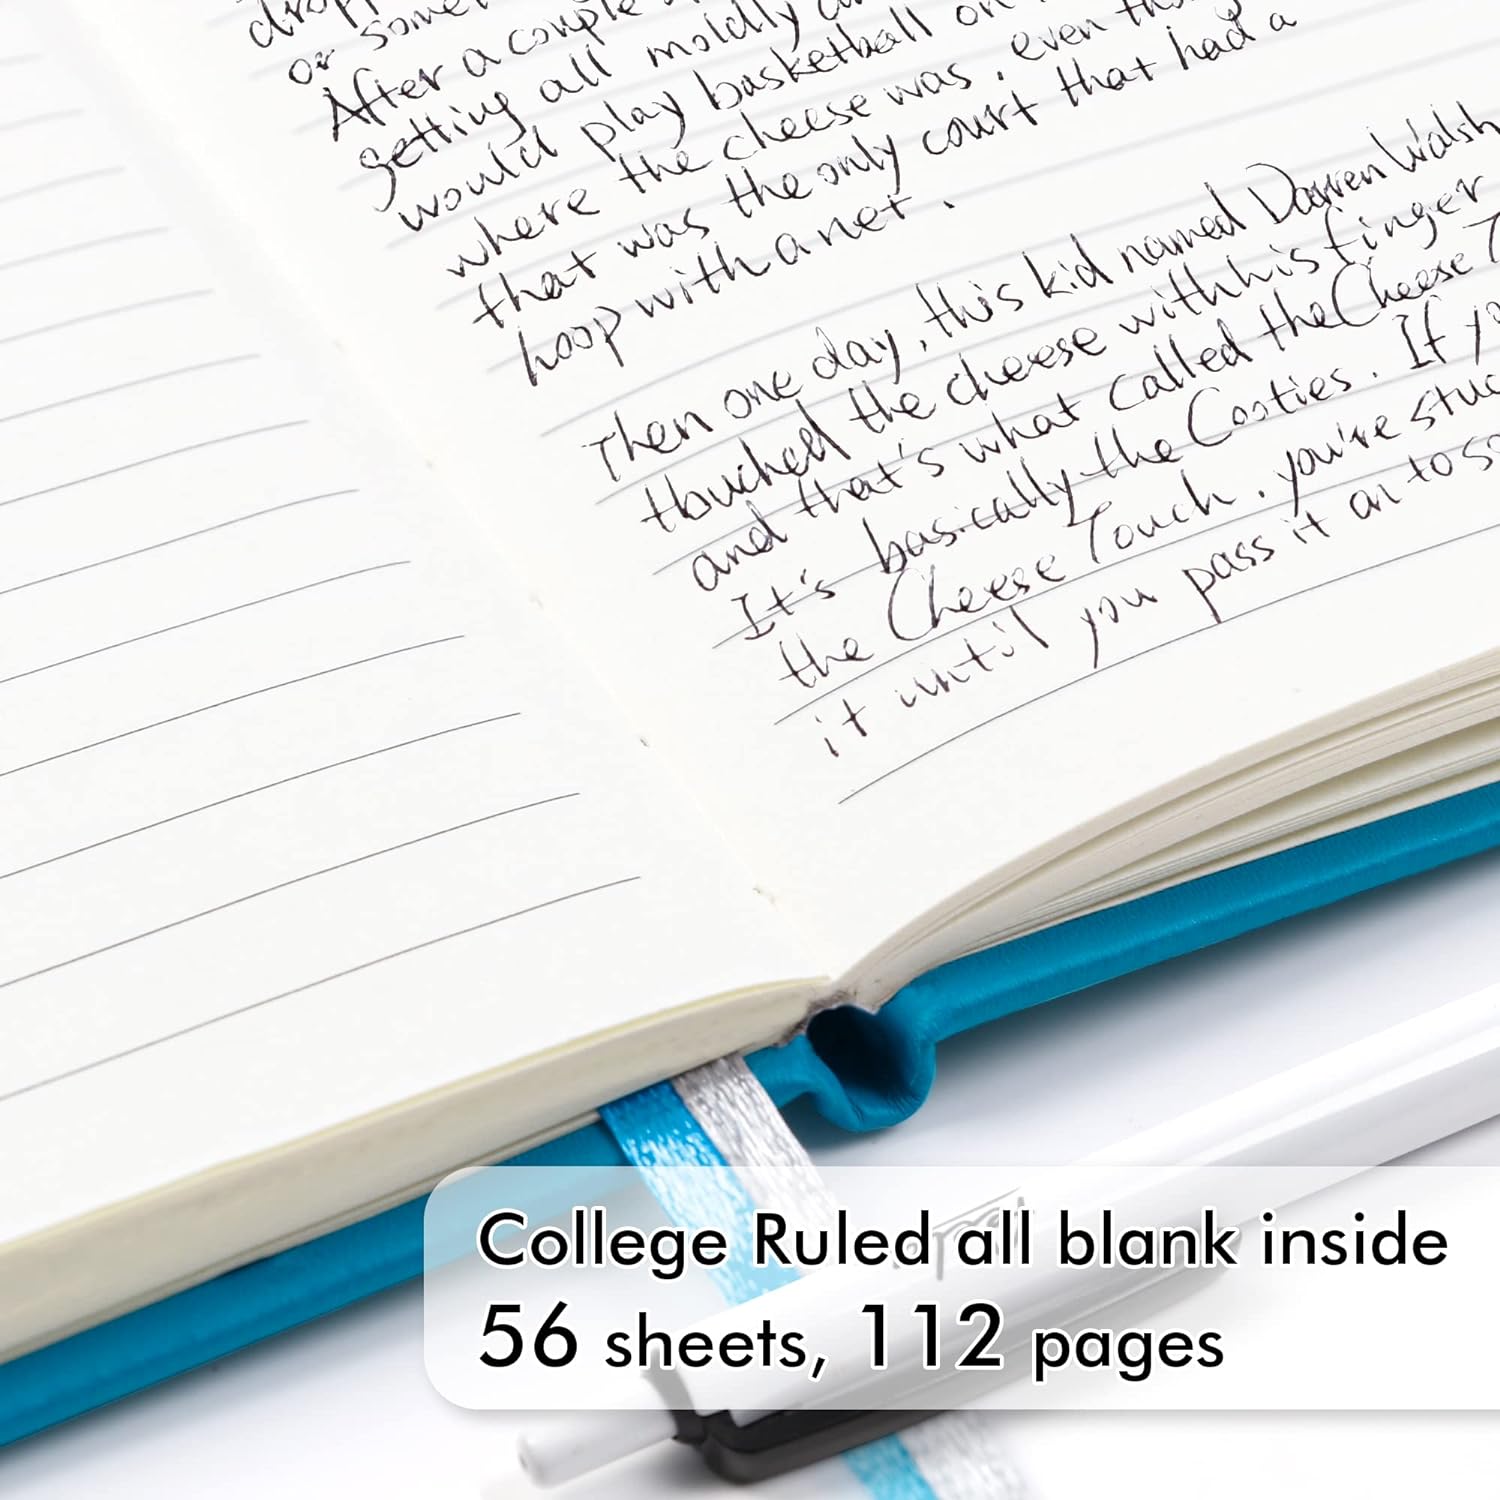 or some
After a couple
getting all moldly an
would play basketball on
where the cheese was, even tho
that was the only court that had a
hoop with a net.
Then one day, this kid named Darren Walsh
thouched the cheese with his finger
and that's what called the Cheese T
It's basically the Cooties. If yo
the Cheese Touch, you're stuc
it until you pass it on to so
College Ruled all blank inside
56 sheets, 112 pages